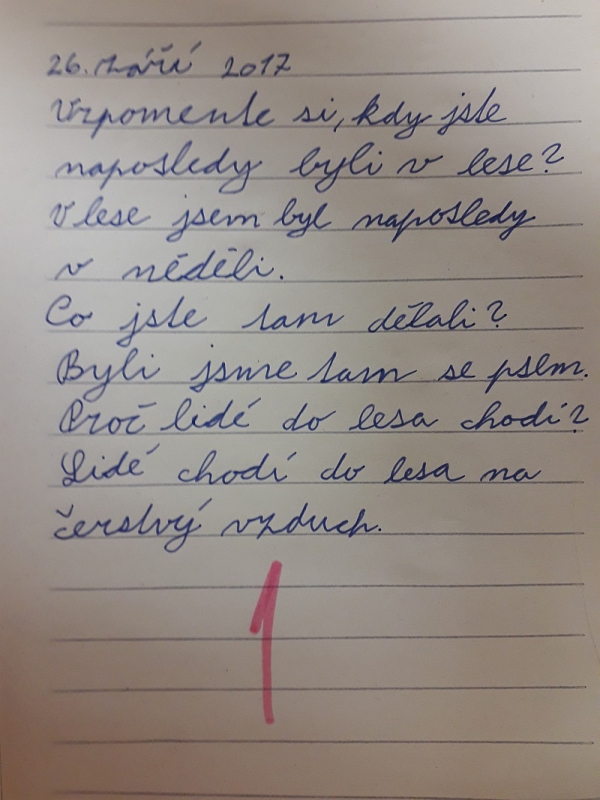 26. září 2017
Vzpomente si, kdy jste
naposledy byli v lese?
V lese jsem byl naposledy
v něděli.
Co jste tam dělali?
Byli jsme tam se psem.
Proč lidé do lesa chodí?
Lidé chodí do lesa na
čerstvý vzduch.
1